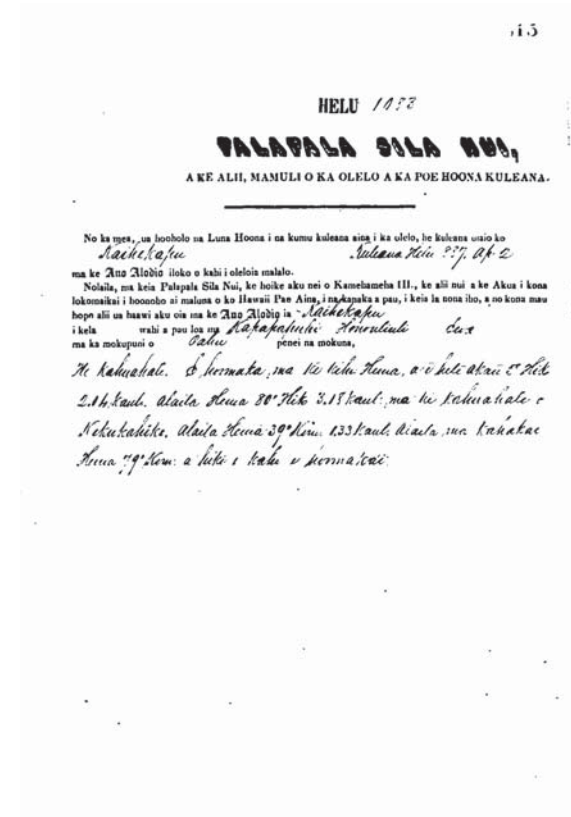 15
HELU 1083
PALAPALA SILA NUI,
A KE ALII, MAMULI O KA OLELO A KA POE HOONA KULEANA.
No ka mea, ua hooholo na Luna Hoona i na kumu kuleana aina i ka olelo, he kuleana oiaio ko
Kaihekapu Kuleana Helu Ap. 2
ma ke Ano Alodio iloko o kahi i oleloia malalo.
Nolaila, ma keia Palapala Sila Nui, ke hoike aku nei o Kamehameha III., ke alii nui a ke Akua i kona
lokomaikai i hoonoho ai maluna o ko Hawaii Pae Aina, i na kanaka a pau, i keia la nona iho, a no kona mau
hope alii ua haawi aku oia ma ke Ano Alodio ia Kaihekapu
i kela wahi a pau loa ma Kapapahuhi Honouliuli Ewa
ma ka mokupuni o Oahu penei na mokuna,
He Kahuahale. E hoomaka, ma ke kihi Hema, a e hele Akau Hik
2.14 Kaul. alaila Hema 80° Hik 3.18 Kaul: ma ke kahuahale o
Nekukahike, Alaila Hema 39° Kom. 1.33 Kaul. Alaila, ma Kahakai
Hema 79° Kom: a hiki i kahi e hoomakai: